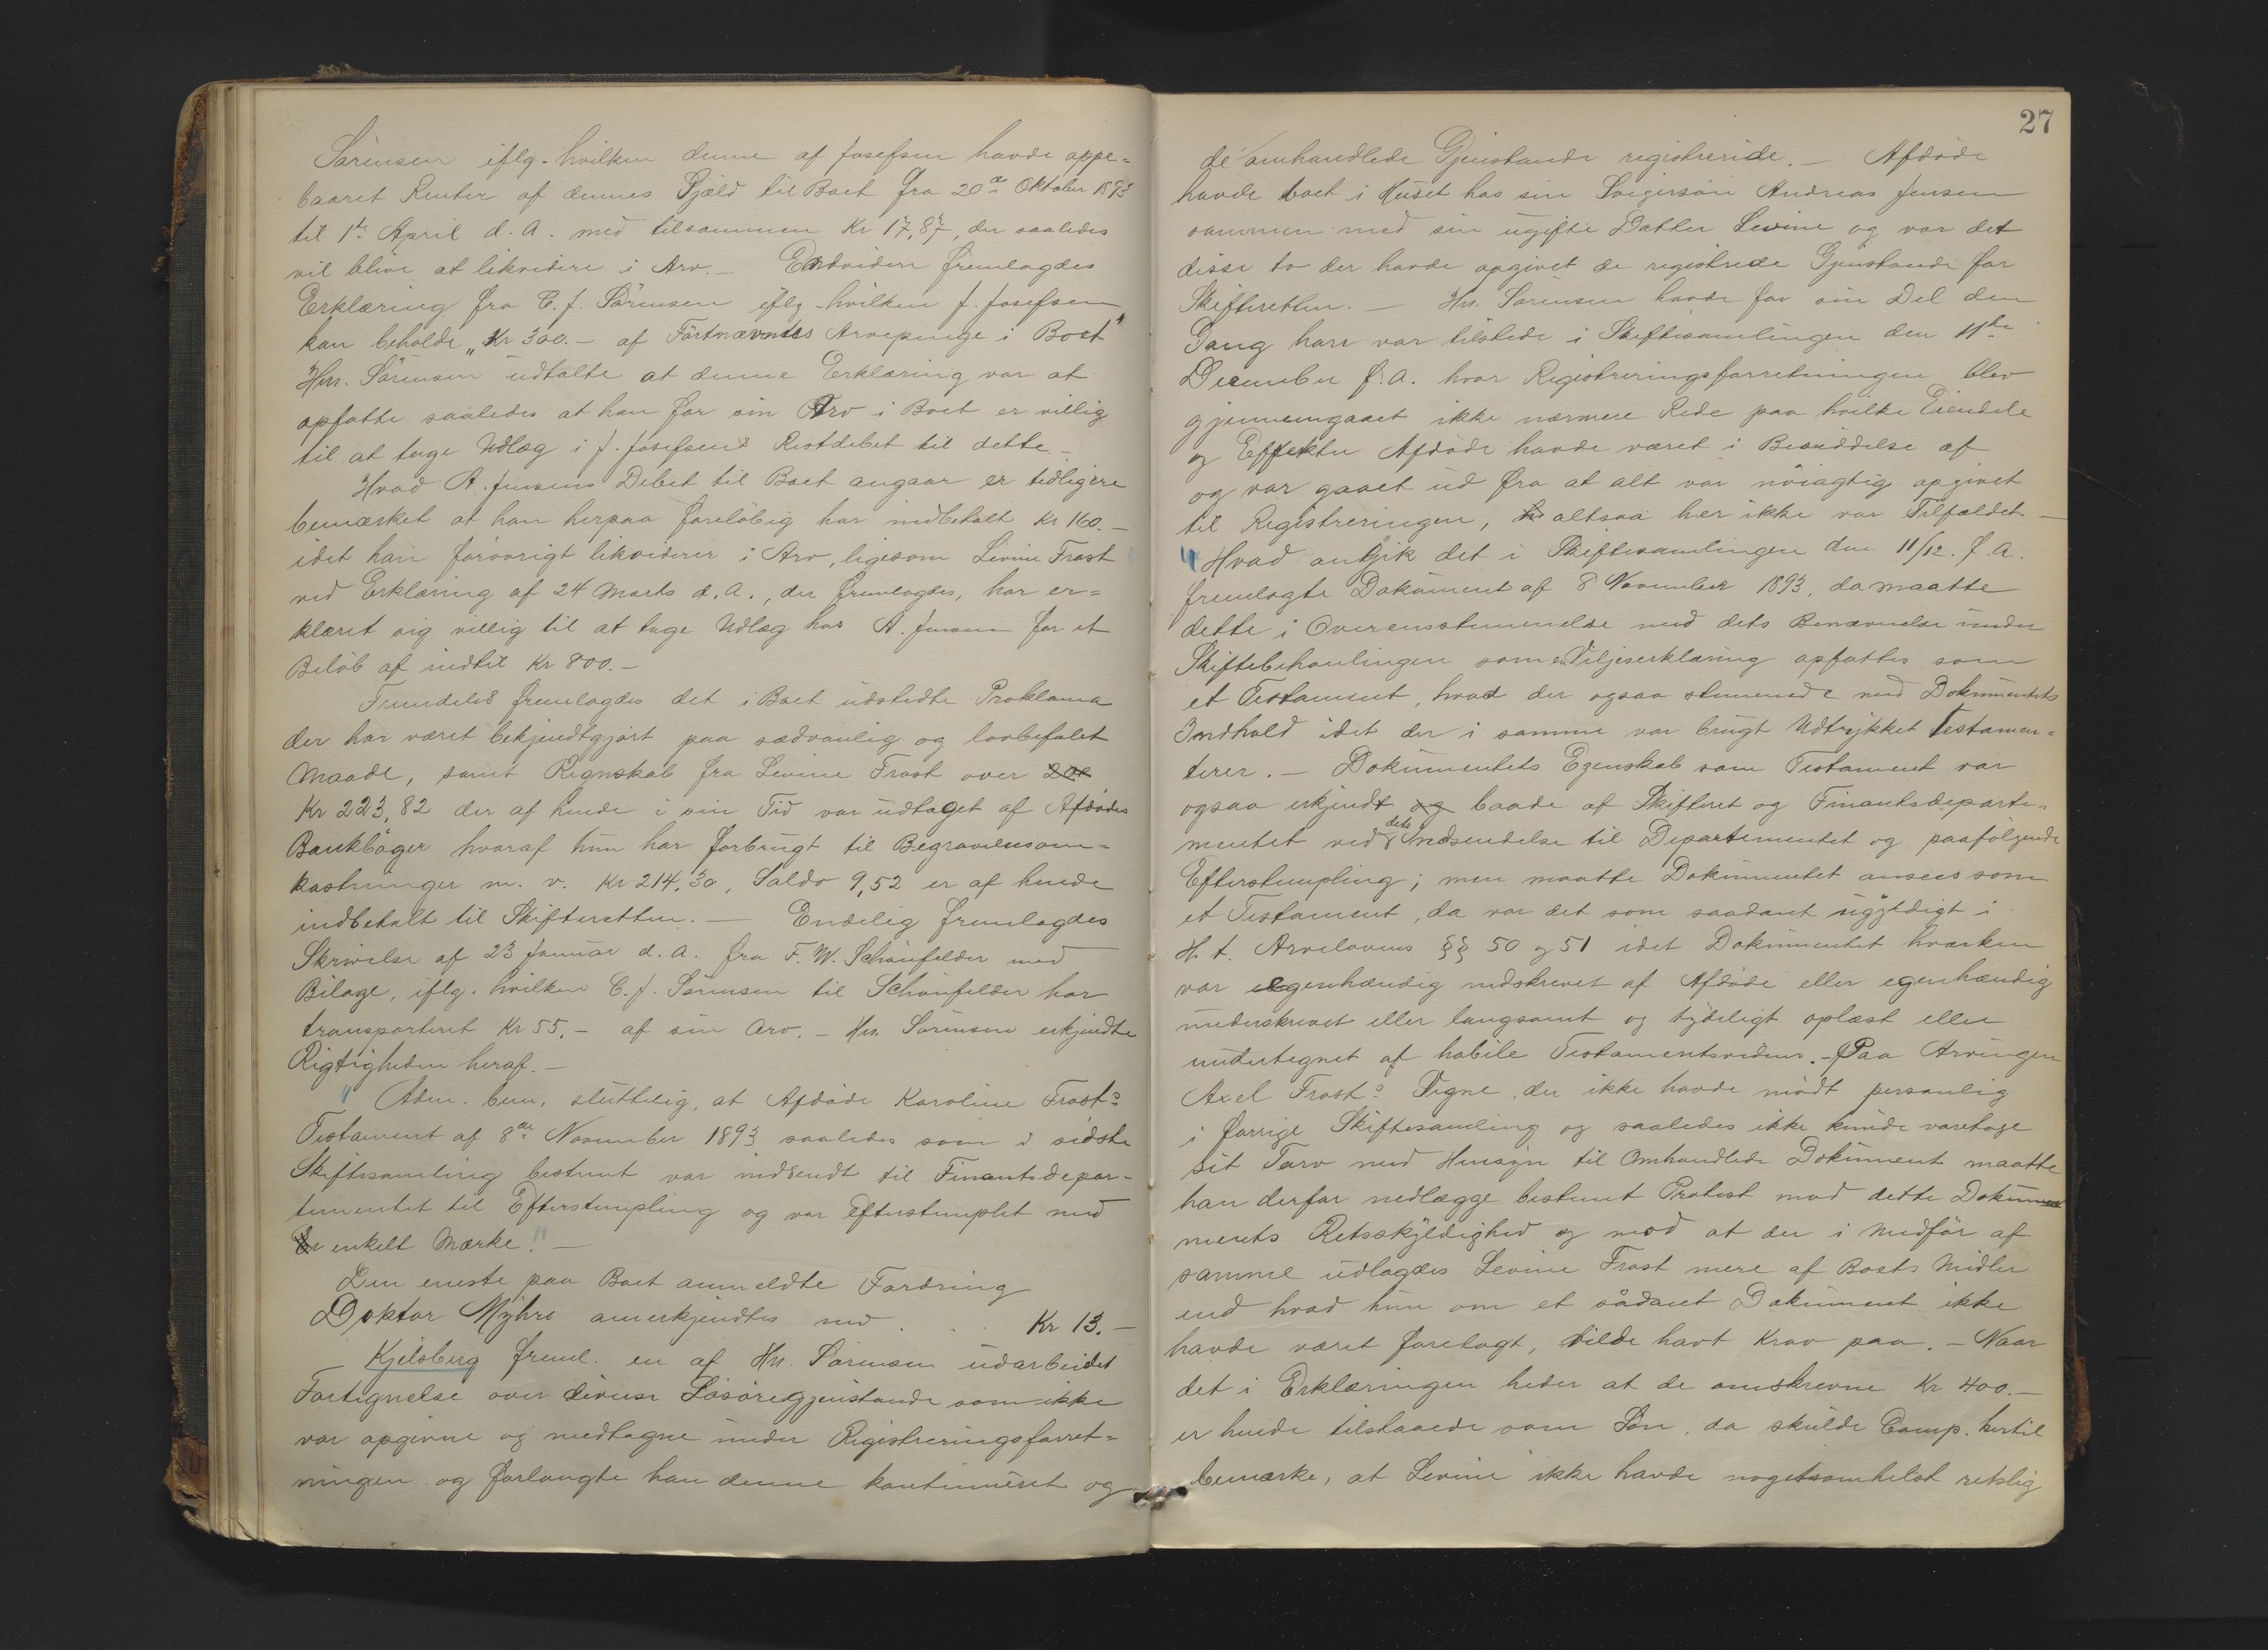 Sörensen iflg. hvilken denne af Josefsen havde oppe=
baaret Renter af dennes Gjæld til Boet fra 20de Oktober 1893
til 1ste April d. A. med tilsammen Kr 17,87, der saaledes
vil blive at likvidere i Arv. — Endvidere fremlagdes
Erklæring fra C. J. Sörensen iflg. hvilken J. Josefsen
kan beholde „Kr 300.- af Förstnævntes Arvepenge i Boet"
Hrr. Sörensen udtalte at denne Erklæring var at
opfatte saaledes at han for sin Arv i Boet er villig
til at tage Udlæg i J. Josefsens Restdebet til dette —
Hvad A. Jensens Debet til Boet angaar er tidligere
bemærket at han herpaa foreløbig har indbetalt Kr 160.—
idet han forövrigt likviderer i Arv, ligesom Levine Frost
ved Erklæring af 24 Marts d. A., der fremlagdes, har er=
klæret sig villig til at tage Udlæg hos A. Jensen for et
Beløb af indtil Kr 800.—
Fremdeles fremlagdes det i Boet udstedte Proklama
der har været bekjendtgjort paa sædvanlig og lovbefalet
Maade, samt Regnskab fra Levine Frost over
Kr 223,82 der af hende i sin Tid var udtaget af Afdödes
Bankböger hvoraf hun har forbrugt til Begravelsesom=
kostninger m. v. Kr 214,30, Saldo 9,52 er af hende
indbetalt til Skifteretten. — Endelig fremlagdes
Skrivelse af 23 Januar d. A. fra F. W. Schönfelder med
Bilage, iflg. hvilken C. J. Sörensen til Schönfelder har
transporteret Kr 55.- af sin Arv. — Hrr. Sörensen erkjendte
Rigtigheden heraf. —
" Adm. bem. sluttelig, at Afdöde Karoline Frosts
Testament af 8de November 1893 saaledes som i sidste
Skiftesamling bestemt var indsendt til Finantsdepar-
tementet til Efterstempling og var efterstemplet med
enkelt Mærke." —
Den eneste paa Boet anmeldte Fordring
Doktor Myhre anerkjendtes med . . . Kr 13.—
Kjelsberg freml. en af Hrr. Sörensen udarbeidet
Fortegnelse over diverse Lösöregjenstande som ikke
var opgivne og medtagne under Registreringsforret=
ningen og forlangte han denne kontinueret og
27
de omhandlede Gjenstande registrerede. — Afdöde
havde boet i Huset hos sin Svigersön Andreas Jensen
sammen med sin ugifte Datter Levine og var det
disse to der havde opgivet de registrerede Gjenstande for
Skifteretten. — Hrr. Sörensen havde for sin Del den
Gang han var tilstede i Skiftesamlingen den 11te
December f. A. hvor Registreringsforretningen blev
gjennemgaaet ikke nærmere Rede paa hvilke Eiendele
og Effekter Afdöde havde været i Besiddelse af
og var gaaet ud fra at alt var nöiagtig opgivet
til Registreringen, altsaa her ikke var Tilfældet. —
" Hvad angik det i Skiftesamlingen den 11/12. f. A.
fremlagte Dokument af 8 November 1893, da maatte
dette i Overensstemmelse med dets Benævnelse under
Skiftebehanlingen som en Viljeserklæring opfattes som
et Testament, hvad der ogsaa stemmede med Dokumentets
Indhold idet der i samme var brugt Udtrykket testamen=
terer. — Dokumentets Egenskab som Testament var
ogsaa erkjendt og baade af Skifteret og Finantsdeparte-
mentet ved dets Indsendelse til Departementet og paafölgende
Efterstempling; men maatte Dokumentet ansees som
et Testament, da var det som saadant ugyldigt i
H. t. Arvelovens §§ 50 og 51 idet Dokumentet hverken
var egenhændig nedskrevet af Afdöde eller egenhændig
underskrevet eller langsomt og tydeligt oplæst eller
undertegnet af habile Testamentsvidner. — Paa Arvingen
Axel Frosts Vegne, der ikke havde mödt personlig
i forrige Skiftesamling og saaledes ikke kunde varetage
sit Tarv med Hensyn til Omhandlede Dokument maatte
han derfor nedlægge bestemt Protest mod dette Doku
ments Retsskyldighed og mod at der i Medför af
samme udlagdes Levine Frost mere af Boets Midler
end hvad hun om et sådant Dokument ikke
havde været forelagt, vilde havt Krav paa. — Naar
det i Erklæringen heder at de omskrevne Kr 400.—
er hende tilstaaede som Lön, da skulde Comp. hertil
bemærke, at Levine ikke havde nogetsomhelst retslig